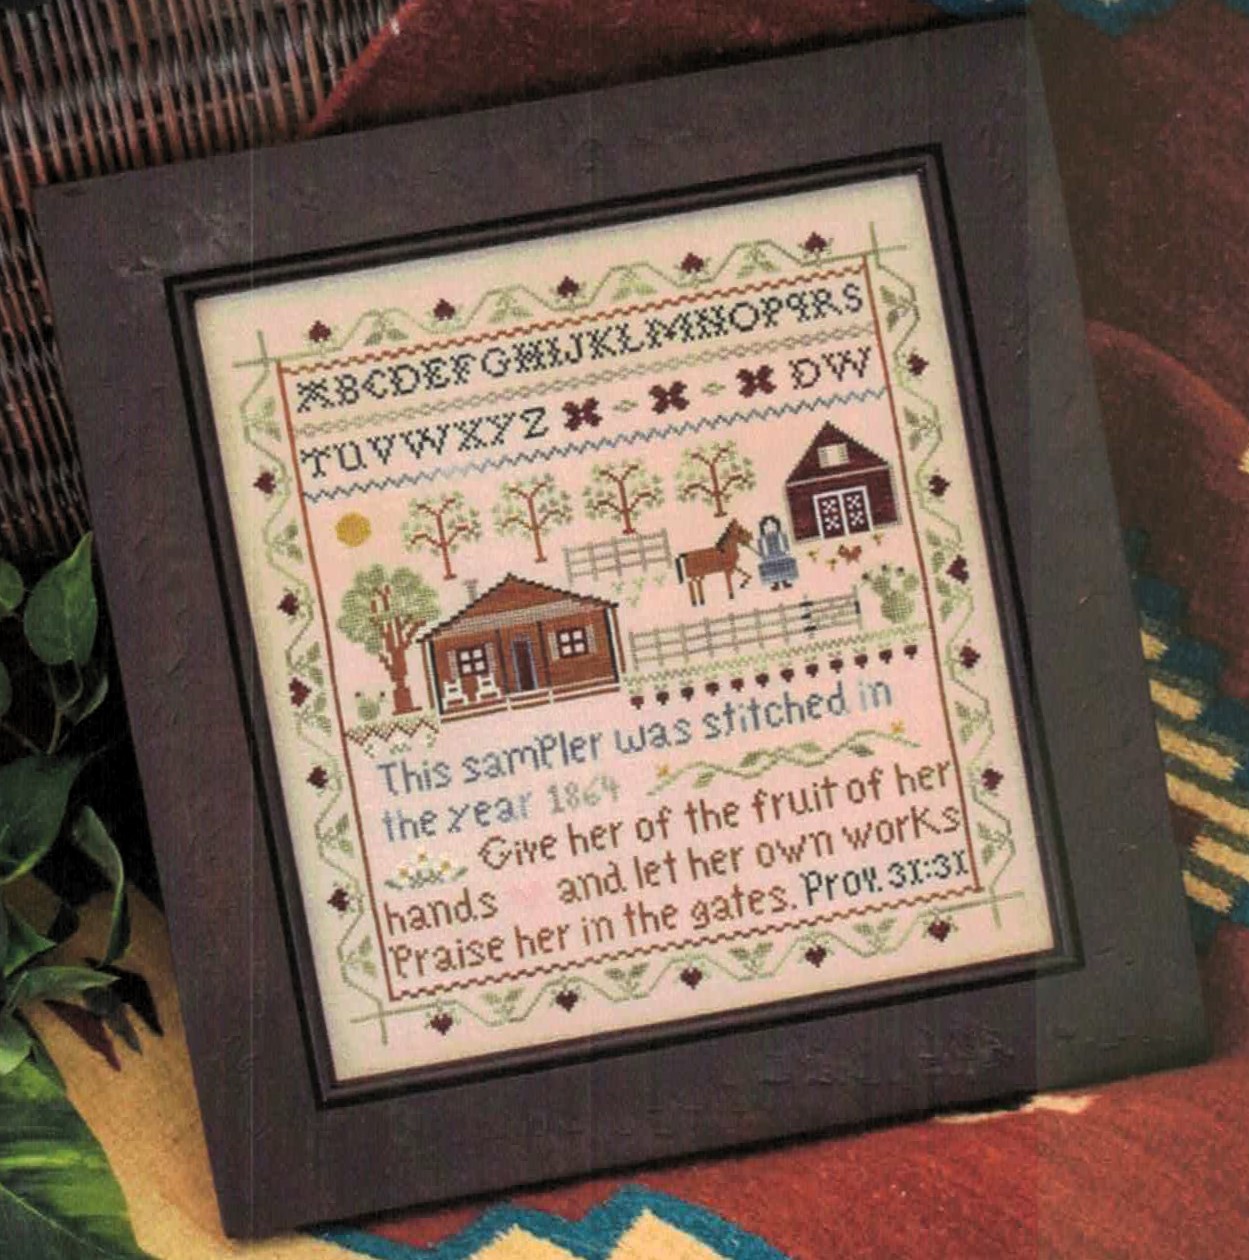 ABCDEFGHIJKLMNOPQRS
TUVWXYZ DW
This sampler was stitched in
the year 1864
Give her of the fruit of her
hands and let her own works
Praise her in the gates. Prov. 31:31